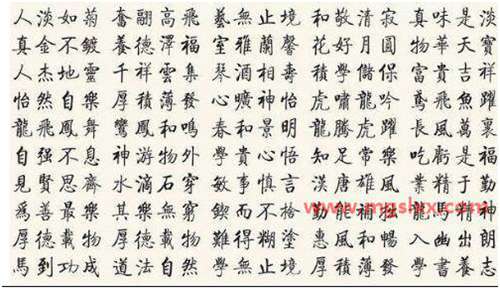 人淡如菊 奮翮高飛 藝無止境 和敬清寂 真味是淡
真金不鍍 養德澤福 室雅蘭馨 花好月圓 物華天寶
人杰地靈 千祥雲集 琴酒相壽 積學儲保 富貴吉祥
怡然自樂 厚積薄發 心曠神怡 虎嘯龍吟 鳶飛魚躍
龍飛鳳舞 鸞鳳和鳴 春和景明 龍騰虎躍 長風萬裏
自强不息 神游物外 學貴心悟 知足常樂 吃虧是福
見賢思齊 水滴石穿 敏事慎言 漢唐雄風 業精于勤
爲善最樂 其樂無窮 鍥而不捨 勤能補拙 神
厚德載物 厚德載物 難得糊塗 惠風和暢 入幽出朗
馬到功成 道法自然 學無止境 厚積薄發 學書養志
www.mgslxx.com